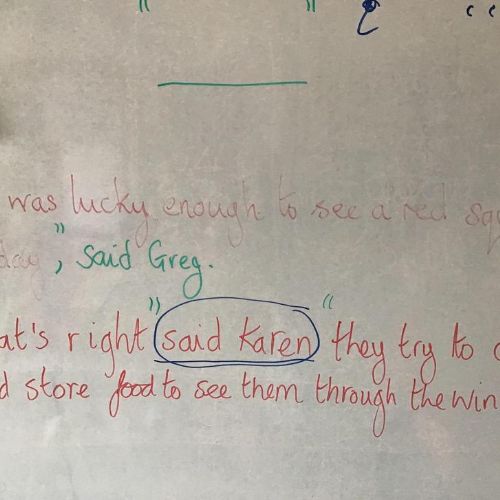 " "
was lucky enough to see a red
day", said Greg.
at's right" said Karen "they try to
store food to see them through the win